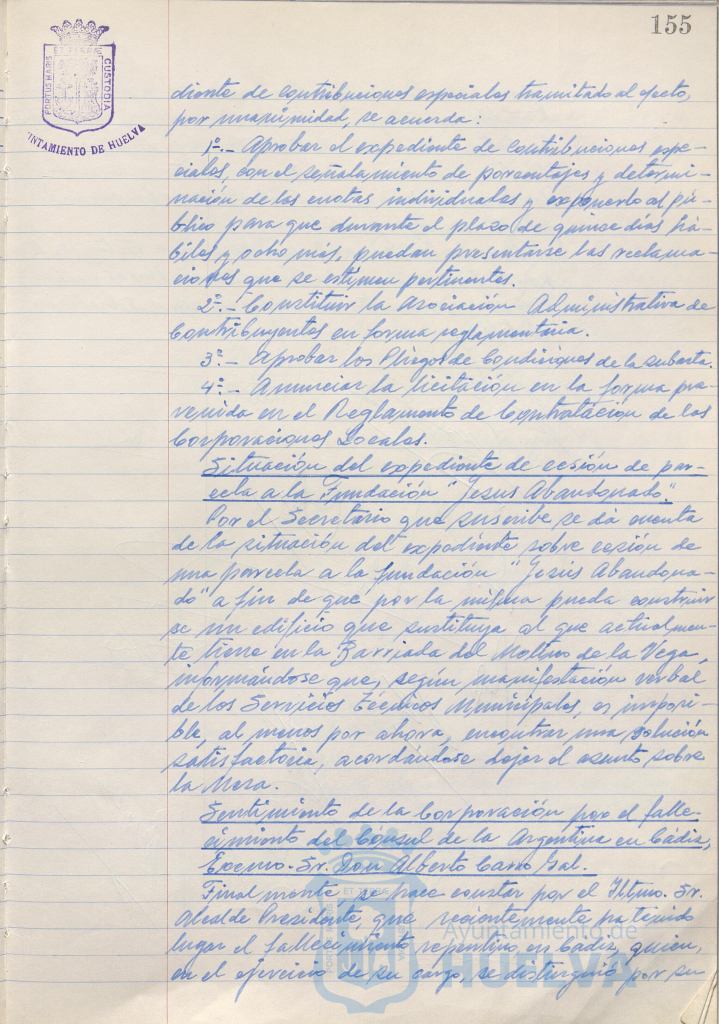 155
PORTUS MARIS ET TERRAE CUSTODIA
NTAMIENTO DE HUELVA
diente de contribuciones especiales tramitado al efecto,
por unanimidad, se acuerda:
1º.- Aprobar el expediente de contribuciones espe-
ciales, con el señalamiento de porcentajes y determi-
nación de las cuotas individuales y exponerlo al pú-
blico para que durante el plazo de quince días há-
biles y ocho más, puedan presentarse las reclama-
ciones que se estimen pertinentes.
2º.- Constituir la Asociación Administrativa de
Contribuyentes en forma reglamentaria.
3º.- Aprobar los Pliegos de Condiciones de la subasta.
4º.- Anunciar la licitación en la forma pre-
venida en el Reglamento de Contratación de las
Corporaciones Locales.
Situación del expediente de cesión de par-
cela a la Fundación "Jesus Abandonado."
Por el Secretario que suscribe se dá cuenta
de la situación del expediente sobre cesión de
una parcela a la fundación "Jesús Abandona-
do" a fin de que por la misma pueda construir
se un edificio que sustituya al que actualmen-
te tiene en la Barriada del Molino de la Vega,
informándose que, según manifestación verbal
de los Servicios Técnicos Municipales, es imposi-
ble, al menos por ahora, encontrar una solución
satisfactoria, acordándose dejar el asunto sobre
la Mesa.
Sentimiento de la Corporación por el falle-
cimiento del Cónsul de la Argentina en Cádiz,
Excmo. Sr. Don Alberto
Finalmente se hace constar por el Iltmo. Sr.
Alcalde Presidente, que recientemente ha tenido
lugar el fallecimiento repentino en Cádiz, quien,
en el ejercicio de su cargo, se distinguió por su
Ayuntamiento de
HUELVA